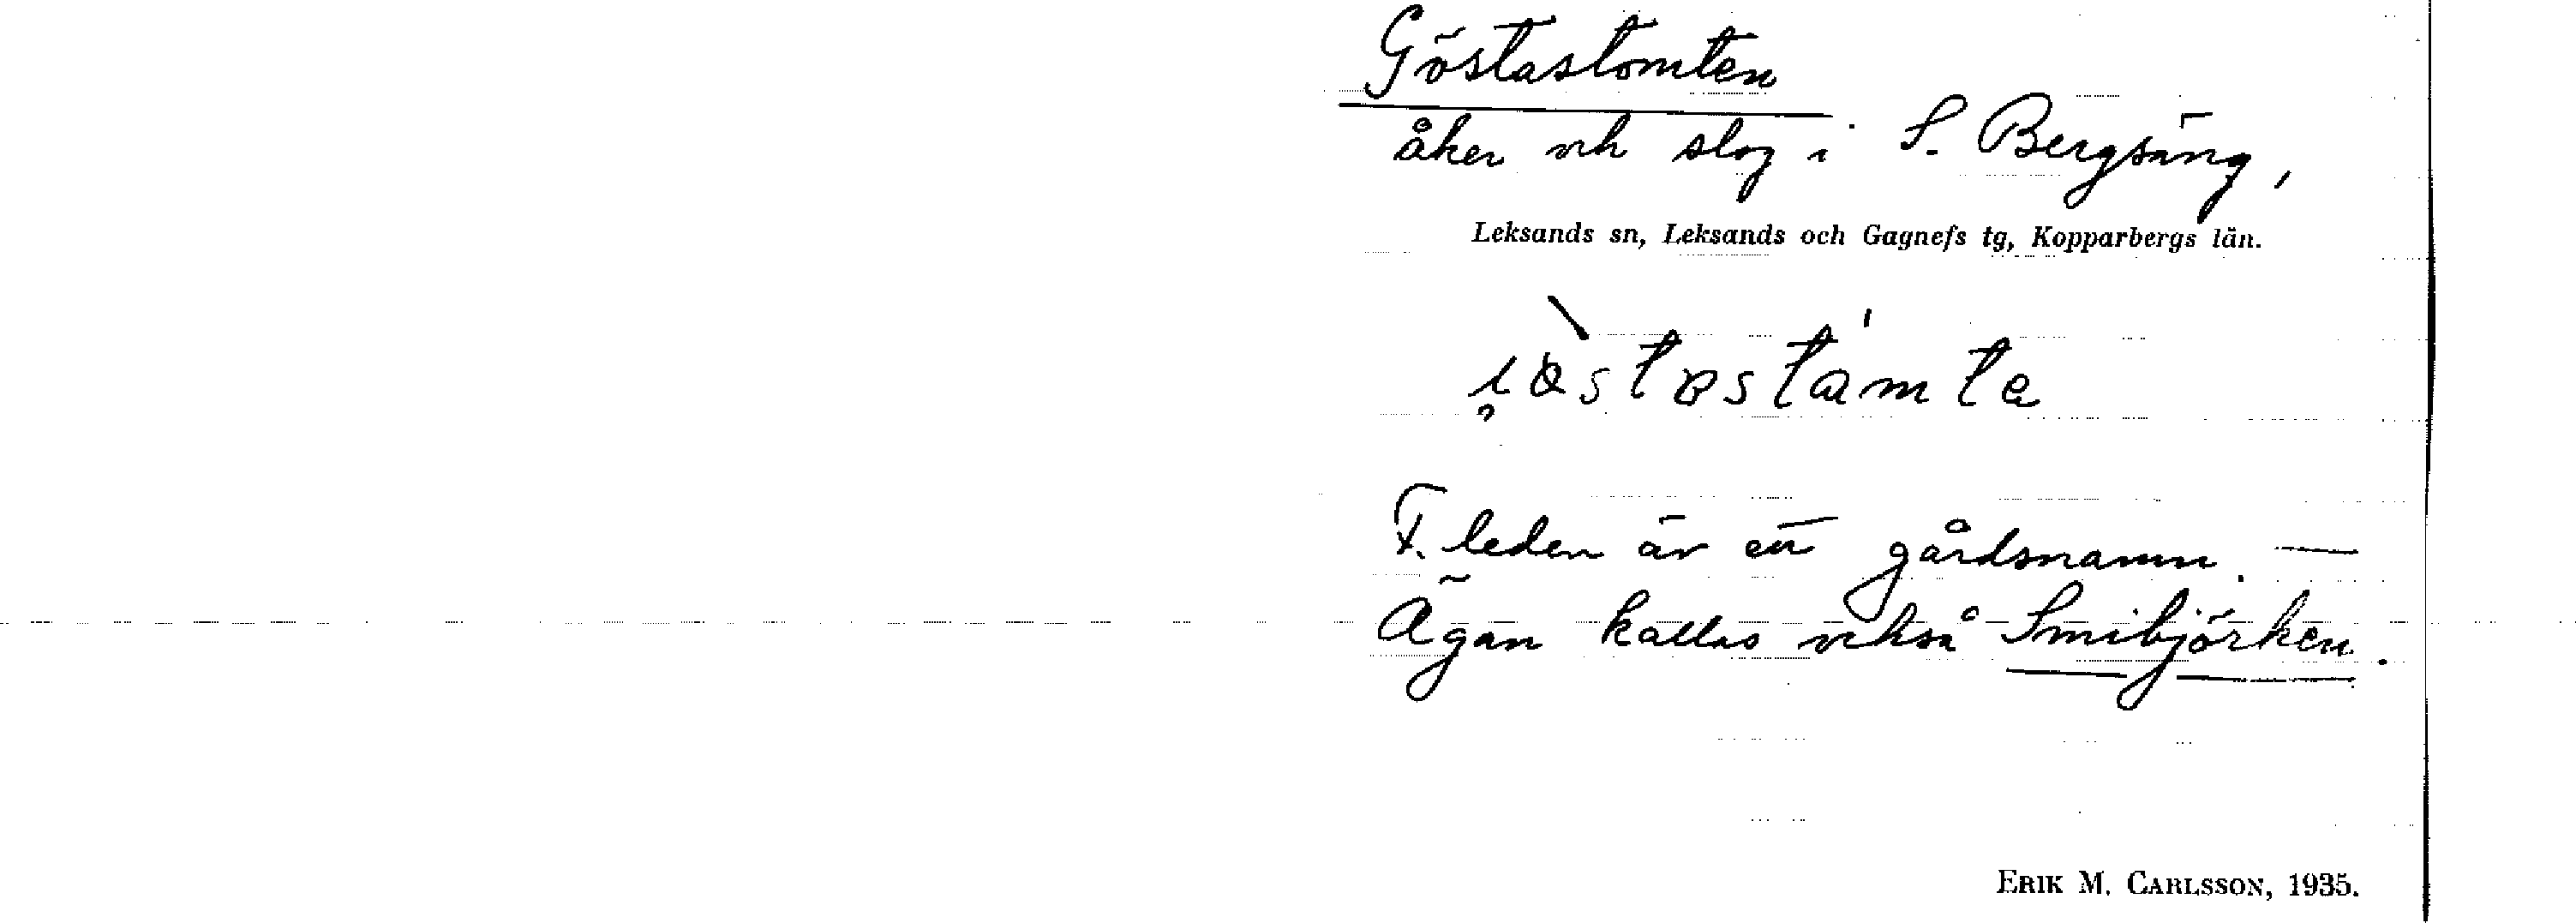 Göstastomten
åker och slog i S. Bergsäng,
Leksands sn, Leksands och Gagnefs tg, Kopparbergs län.
F. leden är ett gårdsnamn. —
Ägan kallas också Smibjörken.
ERIK M. CARLSSON, 1935.